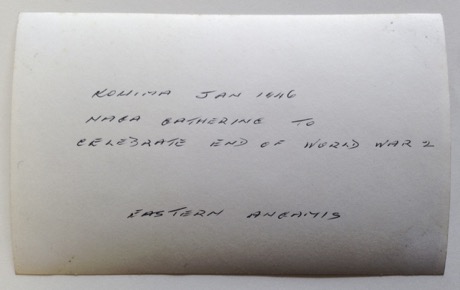 KOHIMA JAN 1946
NAGA GATHERING TO
CELEBRATE END OF WORLD WAR 2
EASTERN ANGAMIS